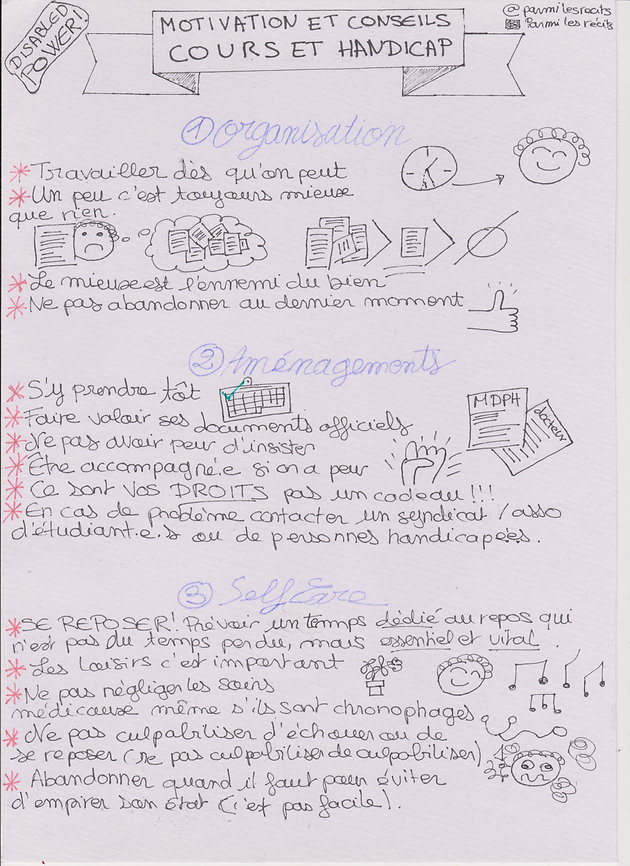 DISABLED
POWER!
MOTIVATION ET CONSEILS
COURS ET HANDICAP
@parmilesrecits
Parmi les récits
① Organisation
* Travailler dès qu'on peut
* Un peu c'est toujours mieux
que rien.
* Le mieux est l'ennemi du bien
* Ne pas abandonner au dernier moment
② Aménagements
* S'y prendre tôt
* Faire valoir ses documents officiels
MDPH
docteur
* Ne pas avoir peur d'insister
* Être accompagné.e si on a peur
* Ce sont VOS DROITS pas un cadeau!!!
* En cas de problème contacter un syndicat / asso
d'étudiant.e.s ou de personnes handicapées.
③ Self Care
* SE REPOSER! Prévoir un temps dédié au repos qui
n'est pas du temps perdu, mais essentiel et vital.
* Les loisirs c'est important
* Ne pas négliger les soins
médicaux même s'ils sont chronophages
* Ne pas culpabiliser d'échouer ou de
se reposer (ne pas culpabiliser de culpabiliser)
* Abandonner quand il faut pour éviter
d'empirer son état (c'est pas facile).